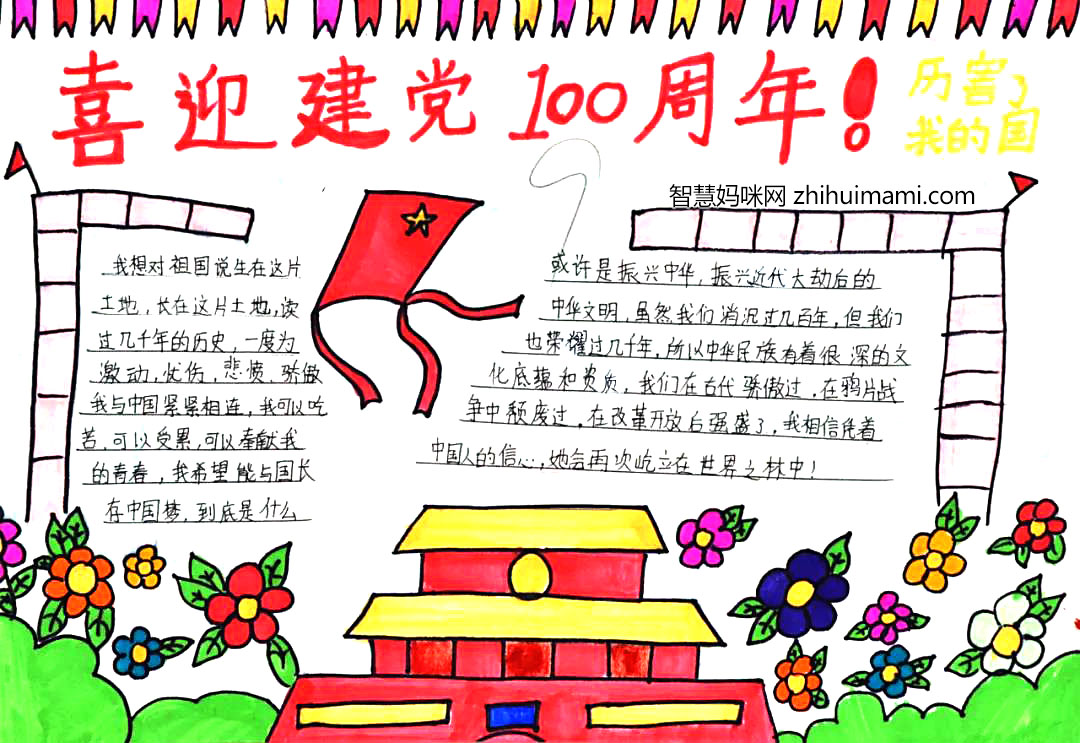 喜迎建党100周年！
历害了
我的国
智慧妈咪网 zhihuimami.com
我想对祖国说生在这片
土地，长在这片土地，读
过几千年的历史，一度为
激动，忧伤，悲愤、骄傲
我与中国紧紧相连，我可以吃
苦，可以受累，可以奉献我
的青春，我希望能与国长
存中国梦，到底是什么
或许是振兴中华，振兴近代大劫后的
中华文明，虽然我们消沉过几百年，但我们
也荣耀过几千年，所以中华民族有着很深的文
化底蕴和资质，我们在古代骄傲过，在鸦片战
争中颓废过，在改革开放后强盛了，我相信凭着
中国人的信心，她会再次屹立在世界之林中！